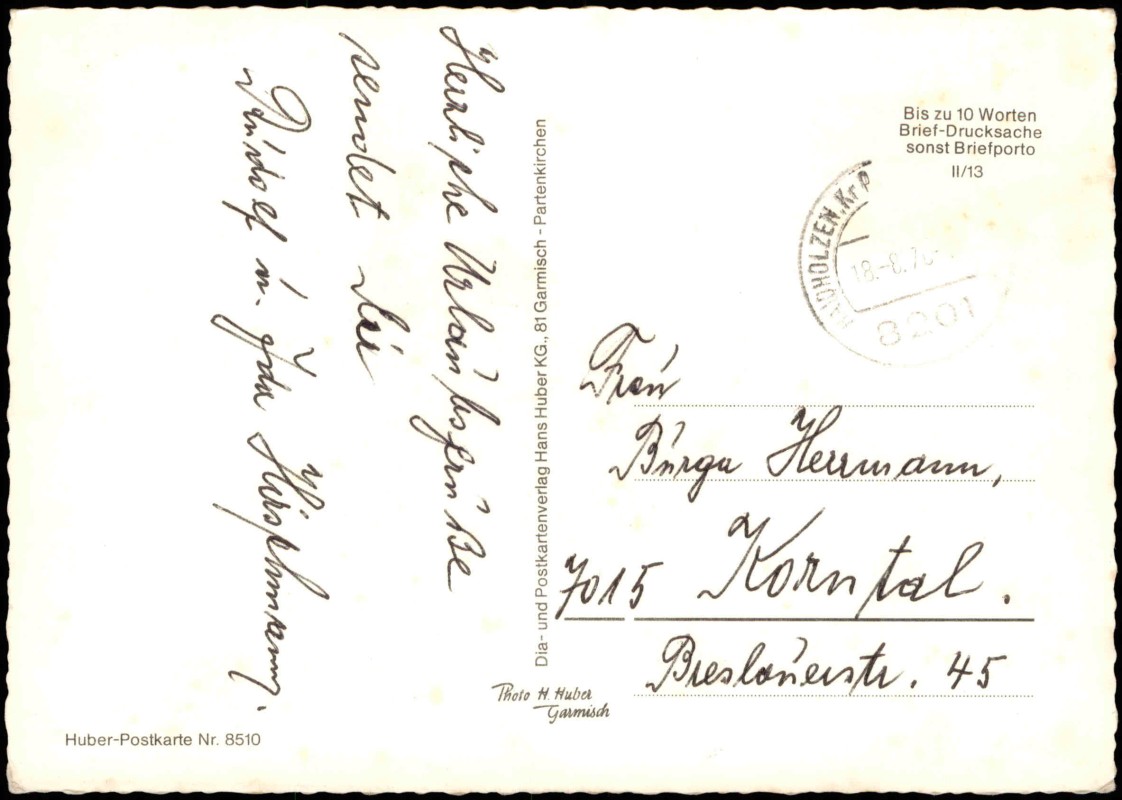 Herzliche Urlaubsgrüße
sendet Dir
Rudolf u. Ida Hirschmann.
Huber-Postkarte Nr. 8510
Dia- und Postkartenverlag Hans Huber KG., 81 Garmisch - Partenkirchen
Photo H. Huber
Garmisch
Bis zu 10 Worten
Brief-Drucksache
sonst Briefporto
II/13
HOLZEN, Kr
18.-8.70-
8201
Frau
Burga Herrmann,
7015 Korntal.
Breslauerstr. 45